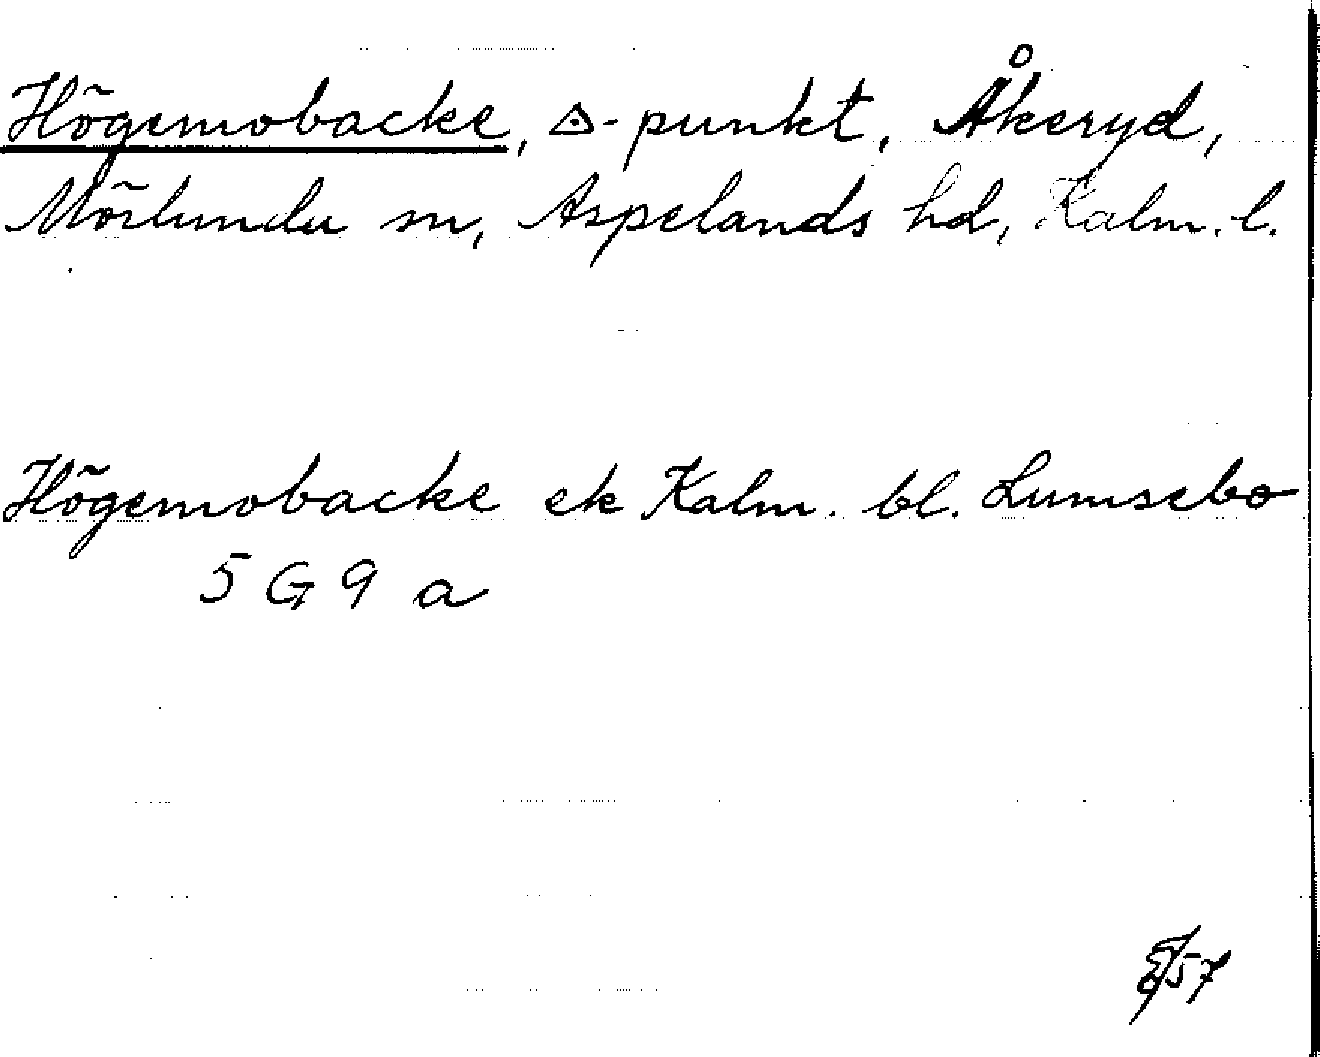 Högemobacke, △-punkt, Åkeryd,
Mörlunda sn, Aspelands hd, Kalm. l.
Högemobacke ek Kalm. bl. Lumsebo
5 G 9 a
57